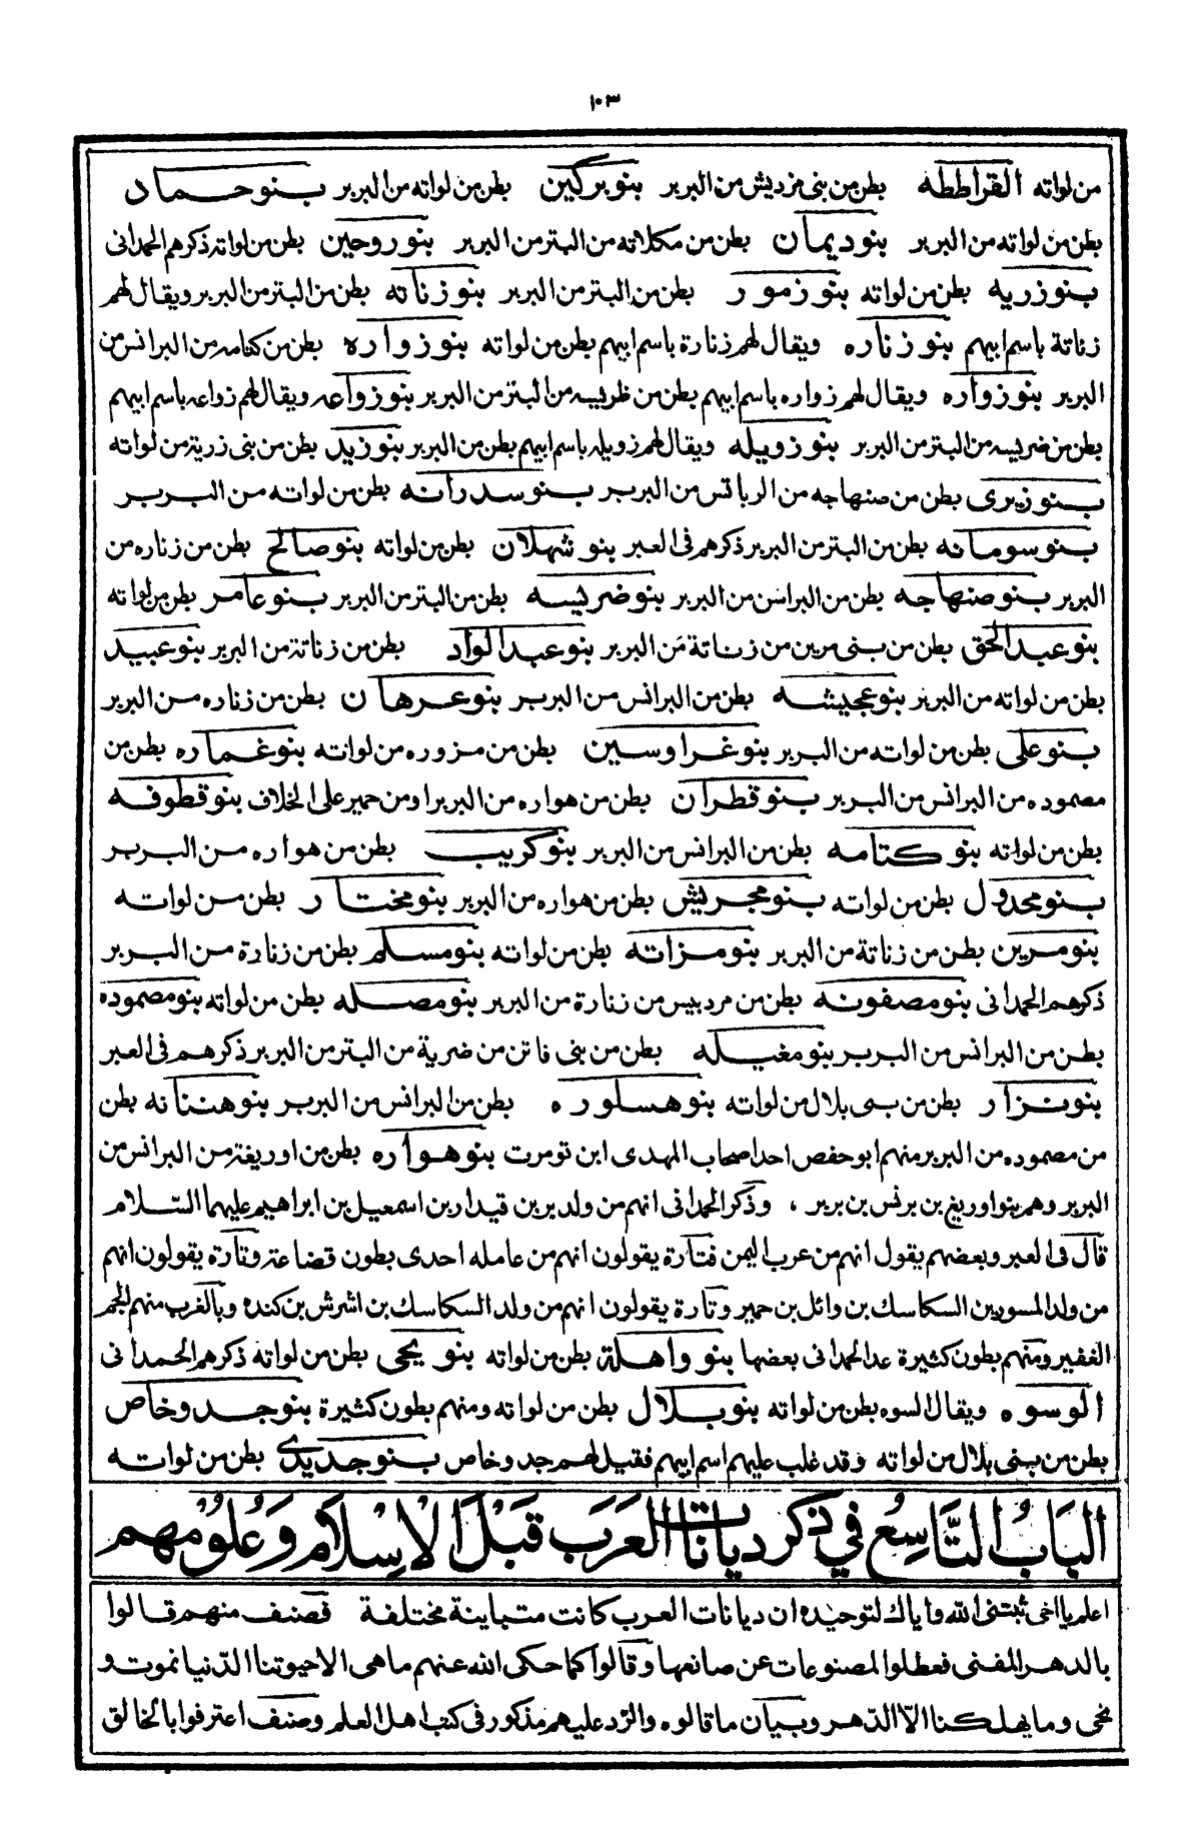 ١٠٣
من لواته القراططه بطن من بنى مزديش من البربر بنو بركين بطن من لواته من البربر بنو حماد
بطن من لواته من البربر بنو ديمان بطن من مكلاته من البتر من البربر بنو روحين بطن من لواته ذكرهم الحمدانى
بنو زريه بطن من لواته بنو زمور بطن من البتر من البربر بنو زناته بطن من البتر من البربر ويقال لهم
زناتة باسم ابيهم بنو زناره ويقال لهم زنارة باسم ابيهم بطن من لواته بنو زواره بطن من كتامه من البرانس من
البربر بنو زواره ويقال لهم زواره باسم ابيهم بطن من ظريسه من البتر من البربر بنو زواعه ويقال لهم زواعه باسم ابيهم
بطن من ضريسه من البتر من البربر بنو زويله ويقال لهم زويله باسم ابيهم بطن من البربر بنو زيد بطن من بنى زرية من لواته
بنو زيرى بطن من صنهاجه من البرانس من البربر بنو سدراته بطن من لواته من البربر
بنو سومانه بطن من البتر من البربر ذكرهم فى العبر بنو شهلان بطن من لواته بنو صالح بطن من زناره من
البربر بنو صنهاجه بطن من البرانس من البربر بنو ضريسه بطن من البتر من البربر بنو عامر بطن من لواته
بنو عبد الحق بطن من بنى مرين من زناتة من البربر بنو عبد الواد بطن من زناتة من البربر بنو عبيد
بطن من لواته من البربر بنو عجيشه بطن من البرانس من البربر بنو عرهان بطن من زناره من البربر
بنو على بطن من لواته من البربر بنو غراوسين بطن من مزوره من لواته بنو غماره بطن من
مصموده من البرانس من البربر بنو قطران بطن من هواره من البربر او من حمير على الخلاف بنو قطوفه
بطن من لواته بنو كتامه بطن من البرانس من البربر بنو كريب بطن من هواره من البربر
بنو مجدول بطن من لواته بنو مجريش بطن من هواره من البربر بنو مختار بطن من لواته
بنو مرين بطن من زناتة من البربر بنو مزاته بطن من لواته بنو مسلم بطن من زنارة من البربر
ذكرهم الحمدانى بنو مصفونه بطن من مرديس من زنارة من البربر بنو مصله بطن من لواته بنو مصموده
بطن من البرانس من البربر بنو مغيله بطن من بنى فاتن من ضرية من البتر من البربر ذكرهم فى العبر
بنو نزار بطن من بنى بلال من لواته بنو هسلوره بطن من البرانس من البربر بنو هنتانه بطن
من مصموده من البربر منهم ابو حفص احد اصحاب المهدى ابن تومرت بنو هواره بطن من اوريغة من البرانس من
البربر وهم بنو اوريغ بن برنس بن بربر ، وذكر الحمدانى انهم من ولد بر بن قيدار بن اسمعيل بن ابراهيم عليهما السّلام
قال فى العبر وبعضهم يقول انهم من عرب اليمن فتارة يقولون انهم من عامله احدى بطون قضاعة وتارة يقولون انهم
من ولد المسور بن السكاسك بن وائل بن حمير وتارة يقولون انهم من ولد السكاسك بن اشرش بن كنده وبالغرب منهم الجم
الغفير ومنهم بطون كثيرة عد الحمدانى بعضها بنو واهلة بطن من لواته بنو يحيى بطن من لواته ذكرهم الحمدانى
الوسوه ويقال السوه بطن من لواته بنو بلال بطن من لواته ومنهم بطون كثيرة بنو جد وخاص
بطن من بنى بلال من لواته وقد غلب عليهم اسم ابيهم فقيل لهم جد وخاص بنو جديدى بطن من لواته
البَابُ التَّاسِعُ في ذكر ديانات العَرَب قَبْلَ الاِسْلاَم وَعُلوُمهم
اعلم يا اخى ثبتنى الله واياك لتوحيده ان ديانات العرب كانت متباينة مختلفة فصنف منهم قالوا
بالدهر المفنى فعطلوا المصنوعات عن صانعها وقالوا كما حكى الله عنهم ما هى الا حيوتنا الدّنيا نموت و
نحى وما يهلكنا الاّ الدّهر وبيان ما قالوه والرّد عليهم مذكور فى كتب اهل العلم وصنف اعترفوا بالخالق